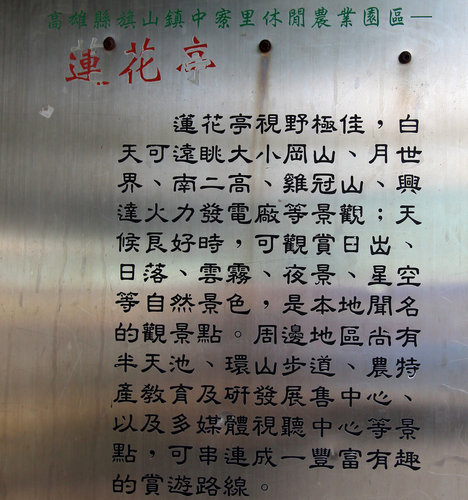 高雄縣旗山鎮中寮里休閒農業園區—
蓮花亭
蓮花亭視野極佳，白
天可遠眺大小岡山、月世
界、南二高、雞冠山、興
達火力發電廠等景觀；天
候良好時，可觀賞日出、
日落、雲霧、夜景、星空
等自然景色，是本地聞名
的觀景點。周邊地區尚有
半天池、環山步道、農特
產教育及研發展售中心、
以及多媒體視聽中心等景
點，可串連成一豐富有趣
的賞遊路線。